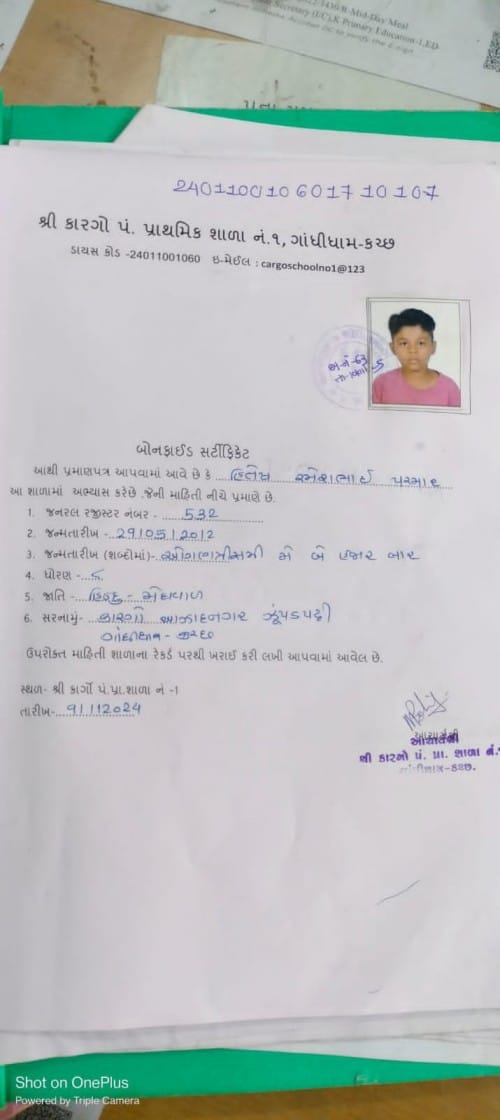 Secretary (I/C),K Primary Education-1,ED
240110010 6017 10 107
શ્રી કારગો પં. પ્રાથમિક શાળા નં.૧, ગાંધીધામ-કચ્છ
ડાયસ કોડ -24011001060 ઇ-મેઈલ : cargoschoolno1@123
બોનફાઈડ સર્ટીફિકેટ
આથી પ્રમાણપત્ર આપવામાં આવે છે કે હિતેષ રમેશભાઈ પરમાર
આ શાળામાં અભ્યાસ કરેછે .જેની માહિતી નીચે પ્રમાણે છે.
1. જનરલ રજીસ્ટર નંબર - 532
2. જન્મતારીખ - 29/05/2012
3. જન્મતારીખ (શબ્દોમાં)- ઓગણત્રીસમી મે બે હજાર બાર
4. ધોરણ -
5. જાતિ - હિન્દુ - મેઘવાળ
6. સરનામું- કારગો આઝાદનગર ઝૂંપડપટ્ટી
ગાંધીધામ - કચ્છ
ઉપરોક્ત માહિતી શાળાના રેકર્ડ પરથી ખરાઈ કરી લખી આપવામાં આવેલ છે.
સ્થળ- શ્રી કાર્ગો પં.પ્રા.શાળા નં -1
તારીખ- 9/11/2024
આચાર્યશ્રી
શ્રી કારગો પં. પ્રા. શાળા નં.૧
ગાંધીધામ-કચ્છ.
Shot on OnePlus
Powered by Triple Camera